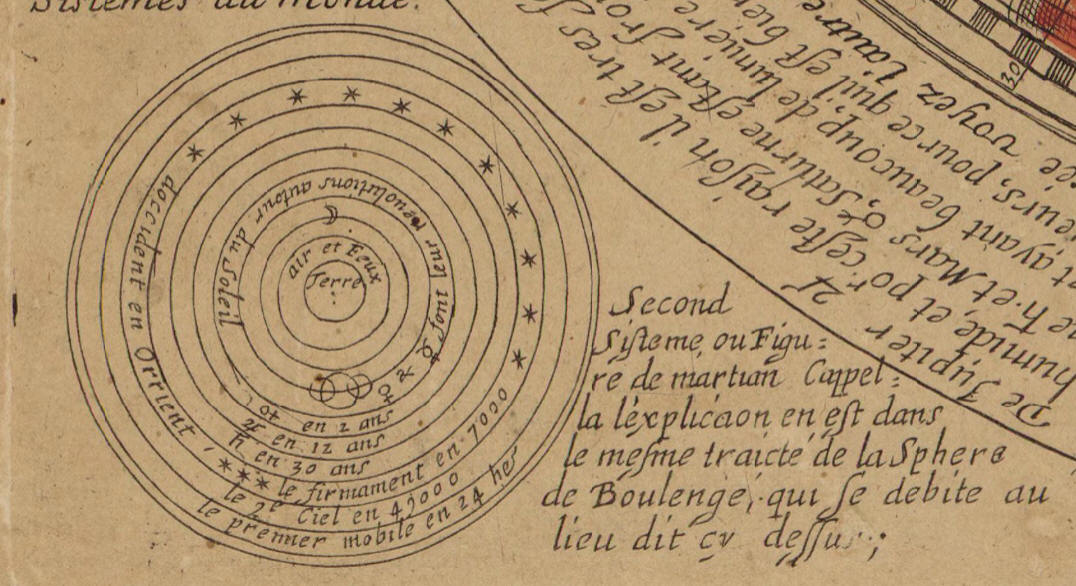 Sistemes du monde.
doccident en Orrient,
font leur reuolutions autour du Soleil
air et Eeux
Terre
♂ en 2 ans
♃ en 12 ans
♄ en 30 ans
le firmament en 7000
le 2e Ciel en 49000
le premier mobile en 24 hes
Second
Sisteme, ou Figu=
re de martian Cappel=
la léxplicãon en est dans
le mesme traicté de la Sphere
de Boulenge, qui se debite au
lieu dit cy dessus;
30
voyez lautre
pource quil est
beaucoup de lumiere
Saturne estant
et Mars
ceste raison il est tres
humide, et por
De Jupiter ♃